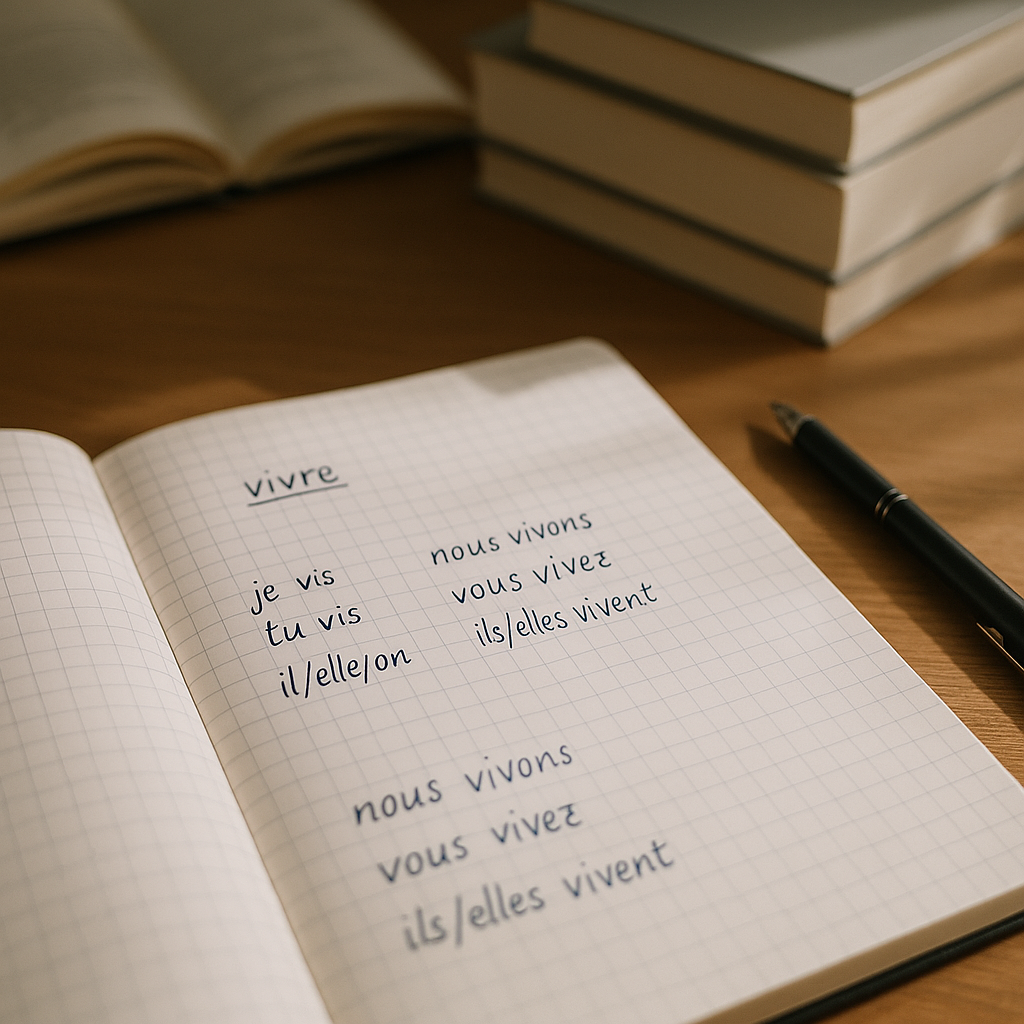 vivre
je vis
tu vis
il/elle/on
nous vivons
vous vivez
ils/elles vivent
nous vivons
vous vivez
ils/elles vivent